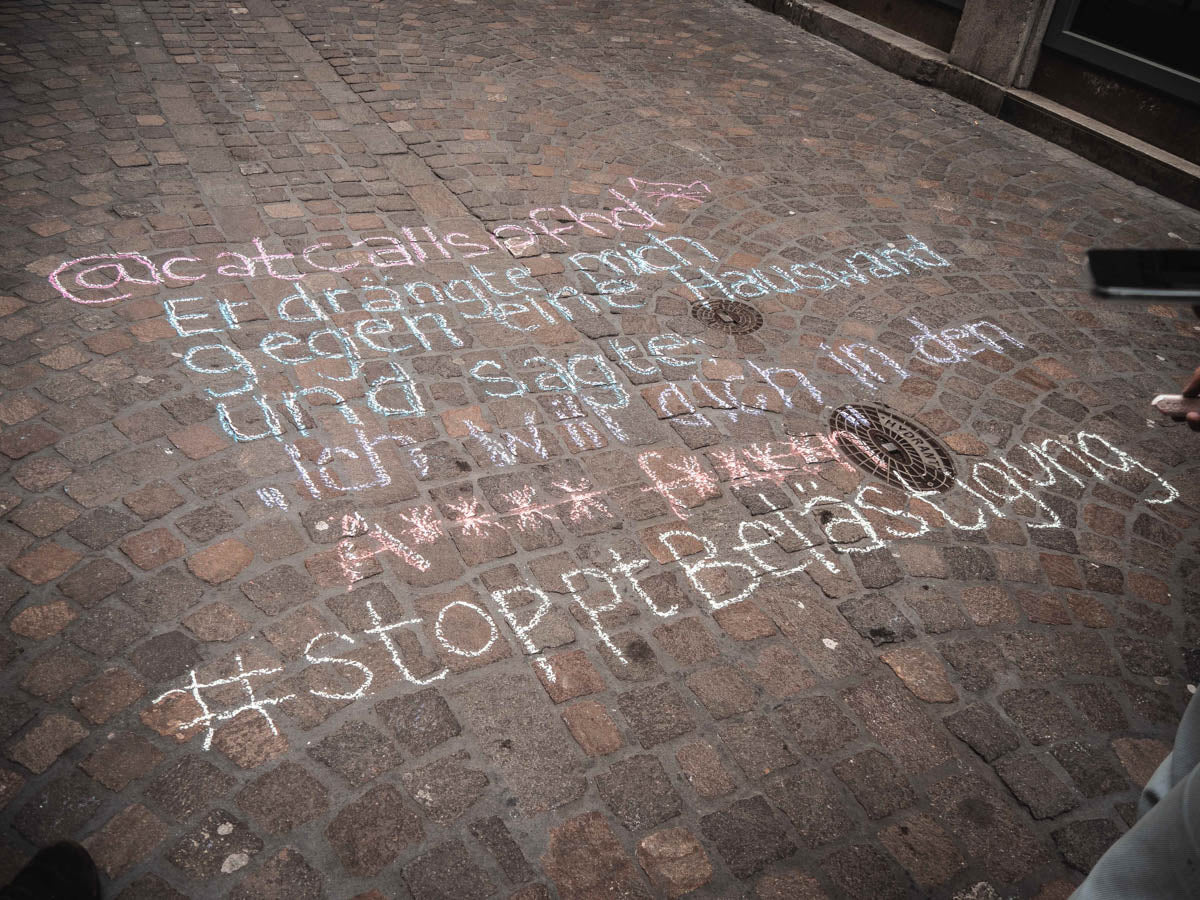 @catcallsofhd
Er drängte mich
gegen eine Hauswand
und sagte:
"Ich will dich in den
A**** f***en"
#stopptBelästigung